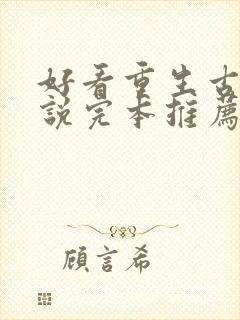 好看重生古
說完本推薦
顧言希